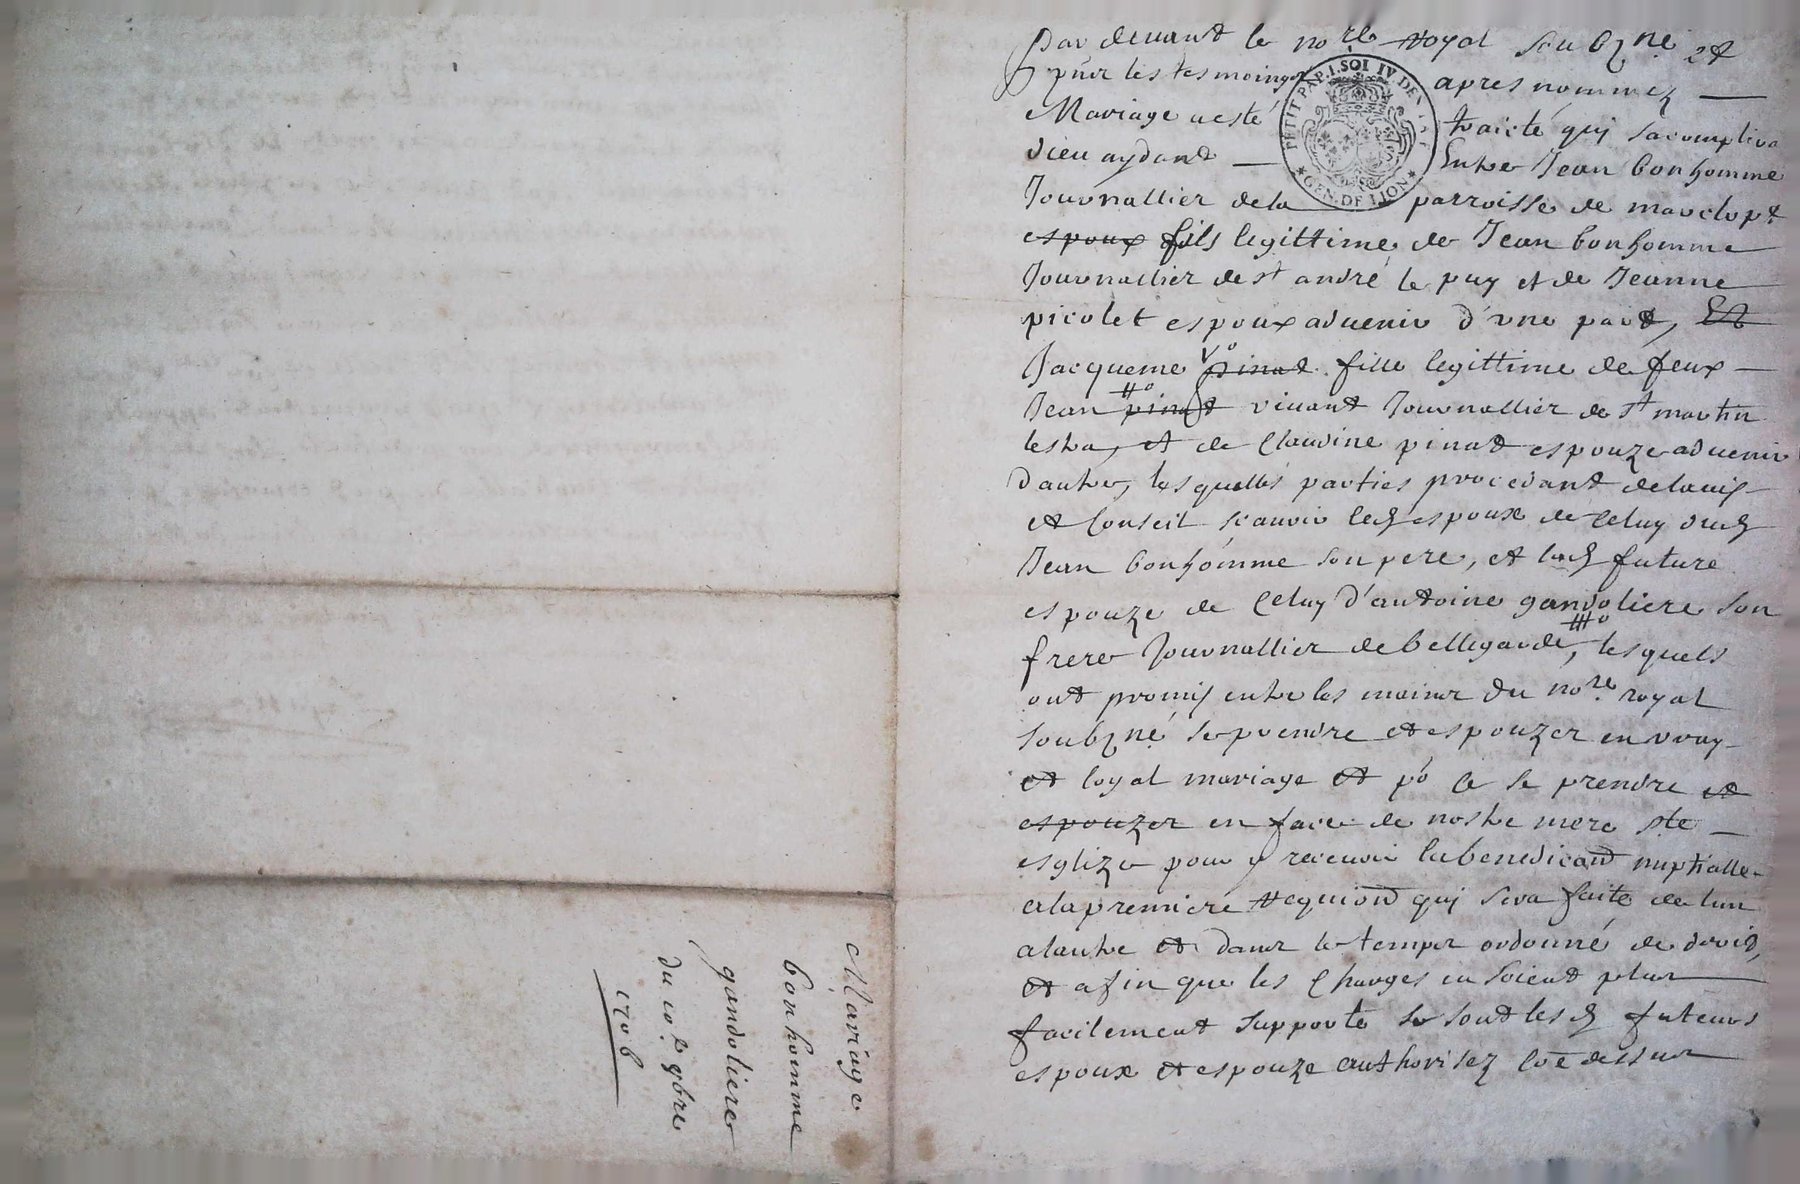 Par devant le no.re royal soubz.né et
p̃nr les tesmoings apres nommez
Mariage a esté traicté qui sacomplira
dieu aydant Entre Jean bonhomme
Journallier de la parroisse de marclopt
espoux fils legittime de Jean bonhomme
Journallier de st andré le puy et de Jeanne
picolet espoux advenir d'une part, Et
Jacqueme pinat fille legittime de feux
Jean pinat vivant Journallier de st martin
lestra, et de Claudine pinat espouze advenir
dautre, lesquelles parties procedant de lavis
et Conseil scavoir led espoux de Celuy dud
Jean bonhomme son pere, et lad future
espouze de Celuy d'antoine gandoliere son
frere Journallier de bellegarde, lesquels
ont promis entre les mains du no.re royal
soubz.né se prendre et espouzer en vray
et loyal mariage et po ce se prendre et
espouzer en face de nostre mere ste
esglize pour y recevoir la benedicaõn nuptialle
a la premiere requiõn qui sera faite de lun
a lautre et dans le temps ordonné de droit,
et afin que les Charges en soient plus
facilement supporté se sont lesd futeurs
espoux et espouze authorisez Coe dessus
PETIT PAP. 1. SOL IV. DEN.
GEN. DE LION
Mariage
bonhomme
gandoliere
du 10e 9bre
1706